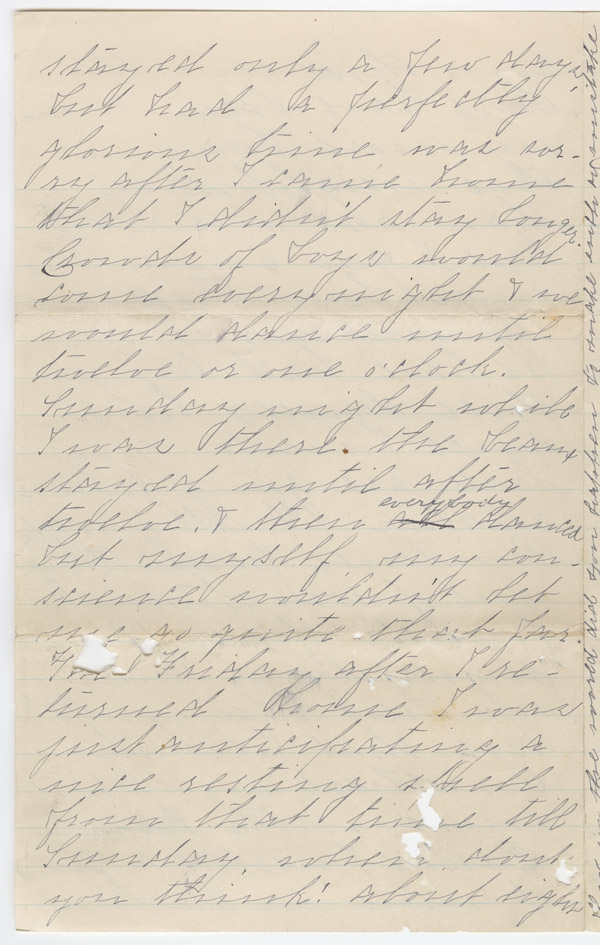 stayed only a few days,
but had a perfectly
glorious time was sor-
ry after I came home
that I didn't stay longer.
Crowds of boys would
come every night & we
would dance until
twelve or one o'clock.
Sunday night while
I was there the beaux
stayed until after
twelve, & then everybody danced
but myself my con-
science wouldn't let
me go quite that far.
The Friday after I re-
turned home I was
just anticipating a
nice resting spell
from that time till
Sunday, when dont
you think! about eight
in the world did you happen to make such a mistake